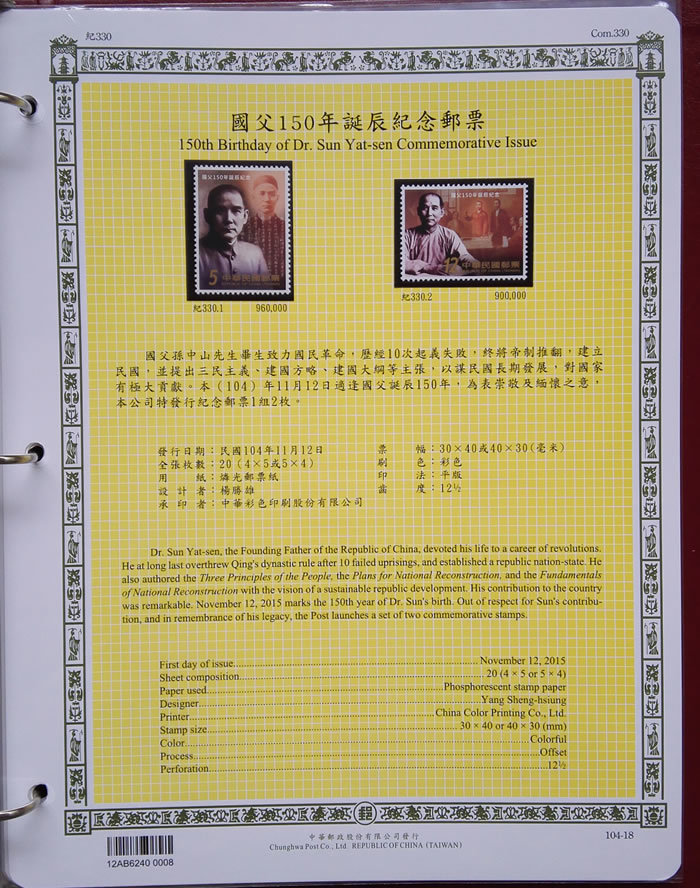 紀330
Com.330
國父150年誕辰紀念郵票
150th Birthday of Dr. Sun Yat-sen Commemorative Issue
國父150年誕辰紀念
5 中華民國郵票
國父150年誕辰紀念
12 中華民國郵票
紀330.1 960,000
紀330.2 900,000
國父孫中山先生畢生致力國民革命，歷經10次起義失敗，終將帝制推翻，建立
民國，並提出三民主義、建國方略、建國大綱等主張，以謀民國長期發展，對國家
有極大貢獻。本（104）年11月12日適逢國父誕辰150年，為表崇敬及緬懷之意，
本公司特發行紀念郵票1組2枚。
發行日期：民國104年11月12日 票幅：30×40或40×30(毫米)
全張枚數：20（4×5或5×4） 刷色：彩色
用紙：燐光郵票紙 印法：平版
設計者：楊勝雄 齒度：12½
承印者：中華彩色印刷股份有限公司
Dr. Sun Yat-sen, the Founding Father of the Republic of China, devoted his life to a career of revolutions.
He at long last overthrew Qing's dynastic rule after 10 failed uprisings, and established a republic nation-state. He
also authored the Three Principles of the People, the Plans for National Reconstruction, and the Fundamentals
of National Reconstruction with the vision of a sustainable republic development. His contribution to the country
was remarkable. November 12, 2015 marks the 150th year of Dr. Sun's birth. Out of respect for Sun's contribu-
tion, and in remembrance of his legacy, the Post launches a set of two commemorative stamps.
First day of issue November 12, 2015
Sheet composition 20 (4 × 5 or 5 × 4)
Paper used Phosphorescent stamp paper
Designer Yang Sheng-hsiung
Printer China Color Printing Co., Ltd.
Stamp size 30 × 40 or 40 × 30 (mm)
Color Colorful
Process Offset
Perforation 12½
郵
中華郵政股份有限公司發行
Chunghwa Post Co., Ltd REPUBLIC OF CHINA (TAIWAN)
104-18
12AB6240 0008